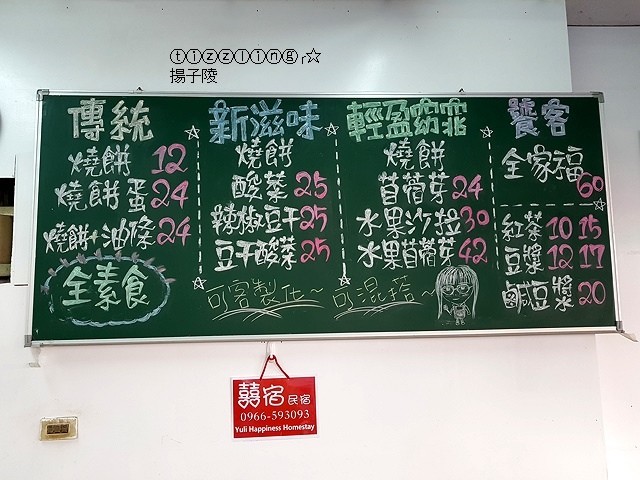 ⓣⓘⓩⓩⓛⓘⓝⓖ╭☆
揚子陵
傳統
燒餅 12
燒餅蛋 24
燒餅+油條 24
全素食
新滋味
燒餅
酸菜 25
辣椒豆干 25
豆干酸菜 25
輕盈窈窕
燒餅
苜蓿芽 24
水果沙拉 30
水果苜蓿芽 42
可客製化~可混搭~
饕客
全家福 60
紅茶 10 15
豆漿 12 17
鹹豆漿 20
囍宿民宿
0966-593093
Yuli Happiness Homestay